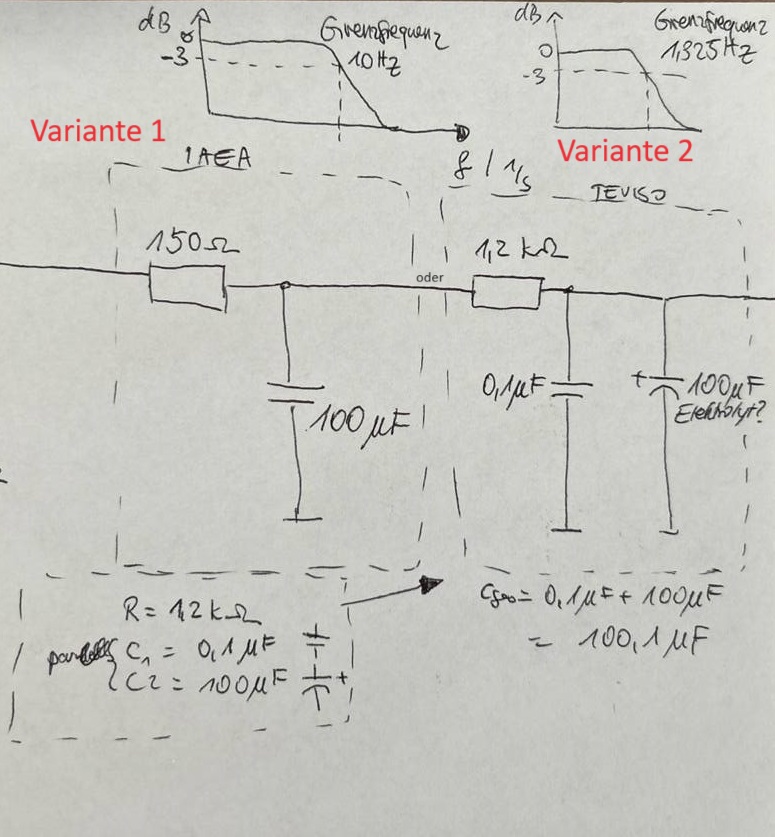 dB
0
-3
Grenzfrequenz
10Hz
dB
0
-3
Grenzfrequenz
1,325Hz
Variante 1
Variante 2
IAEA
f / 1/s
TEVISO
150Ω
oder
1,2 kΩ
100µF
0,1µF
+
100µF
Elektrolyt?
R = 1,2 kΩ
parallel
C1 = 0,1µF
C2 = 100µF
+
Cges = 0,1µF + 100µF
= 100,1µF